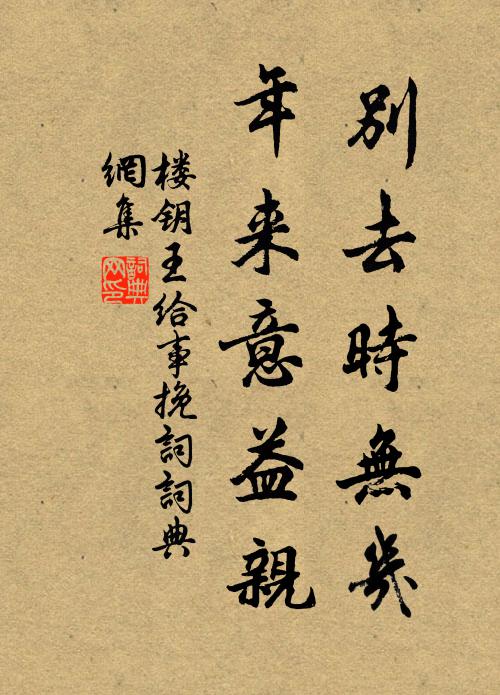 別去時無幾
年来意益親
楼钥王给事挽詞詞典
網集
詞典
网印